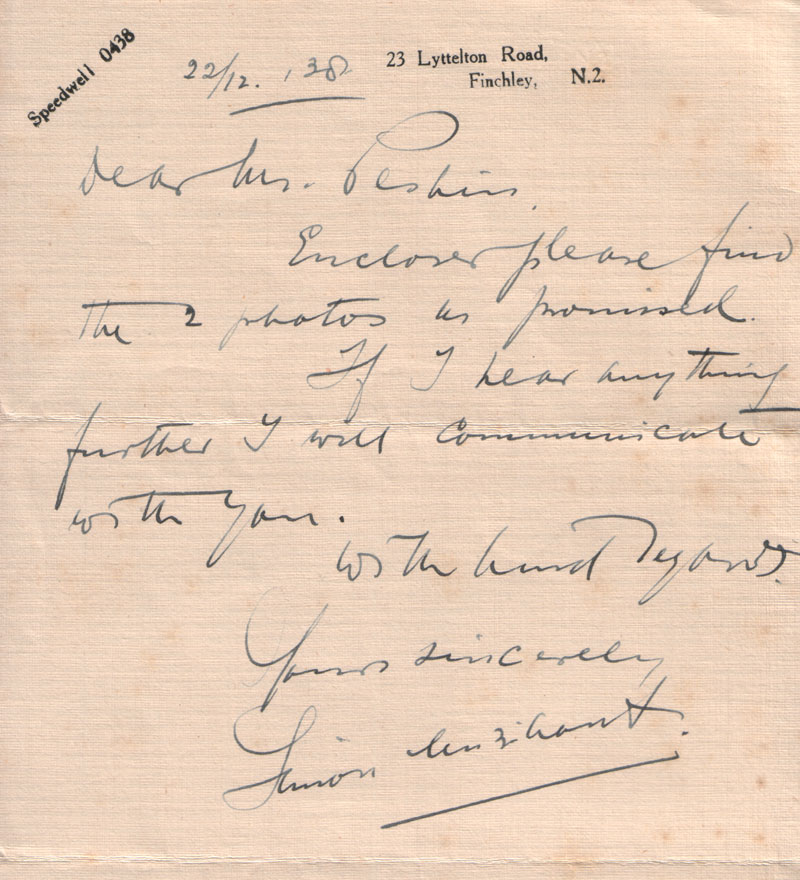 Speedwell 0438
23 Lyttelton Road,
Finchley, N.2.
22/12. '38
Dear Mr. Perkins,
Encloser please find
the 2 photos as promised.
If I hear anything
further I will communicate
with you.
With kind regards.
Yours sincerely
Simon